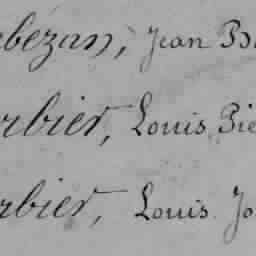 bezan, Jean Ba
rbier, Louis Pie
rbier, Louis Jo